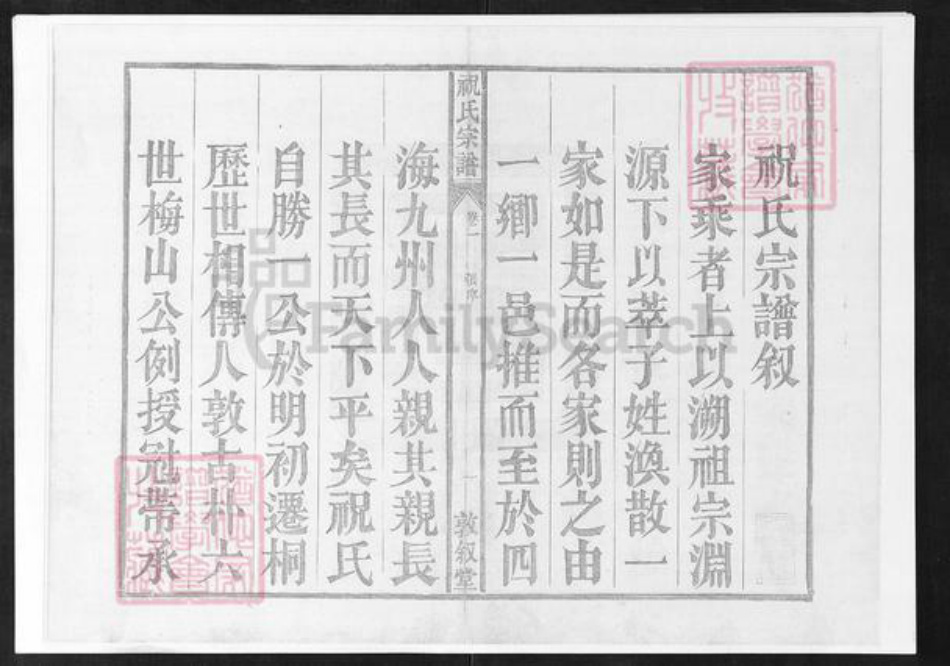 祝氏宗譜叙
家乘者上以溯祖宗淵
源下以萃子姓渙散一
家如是而各家則之由
一鄉一邑推而至於四
祝氏宗譜
卷一
張序
一
敦叙堂
海九州人人親其親長
其長而天下平矣祝氏
自勝一公於明初遷桐
歷世相傳人敦古朴六
世梅山公例授冠帶承
FamilySearch